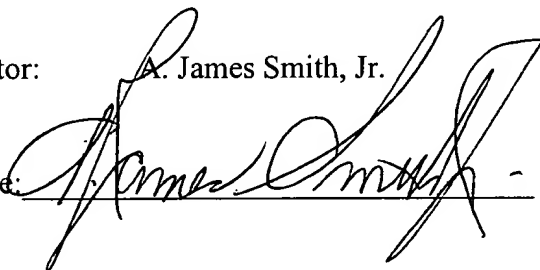 tor: A. James Smith, Jr.
e: A. James Smith Jr.